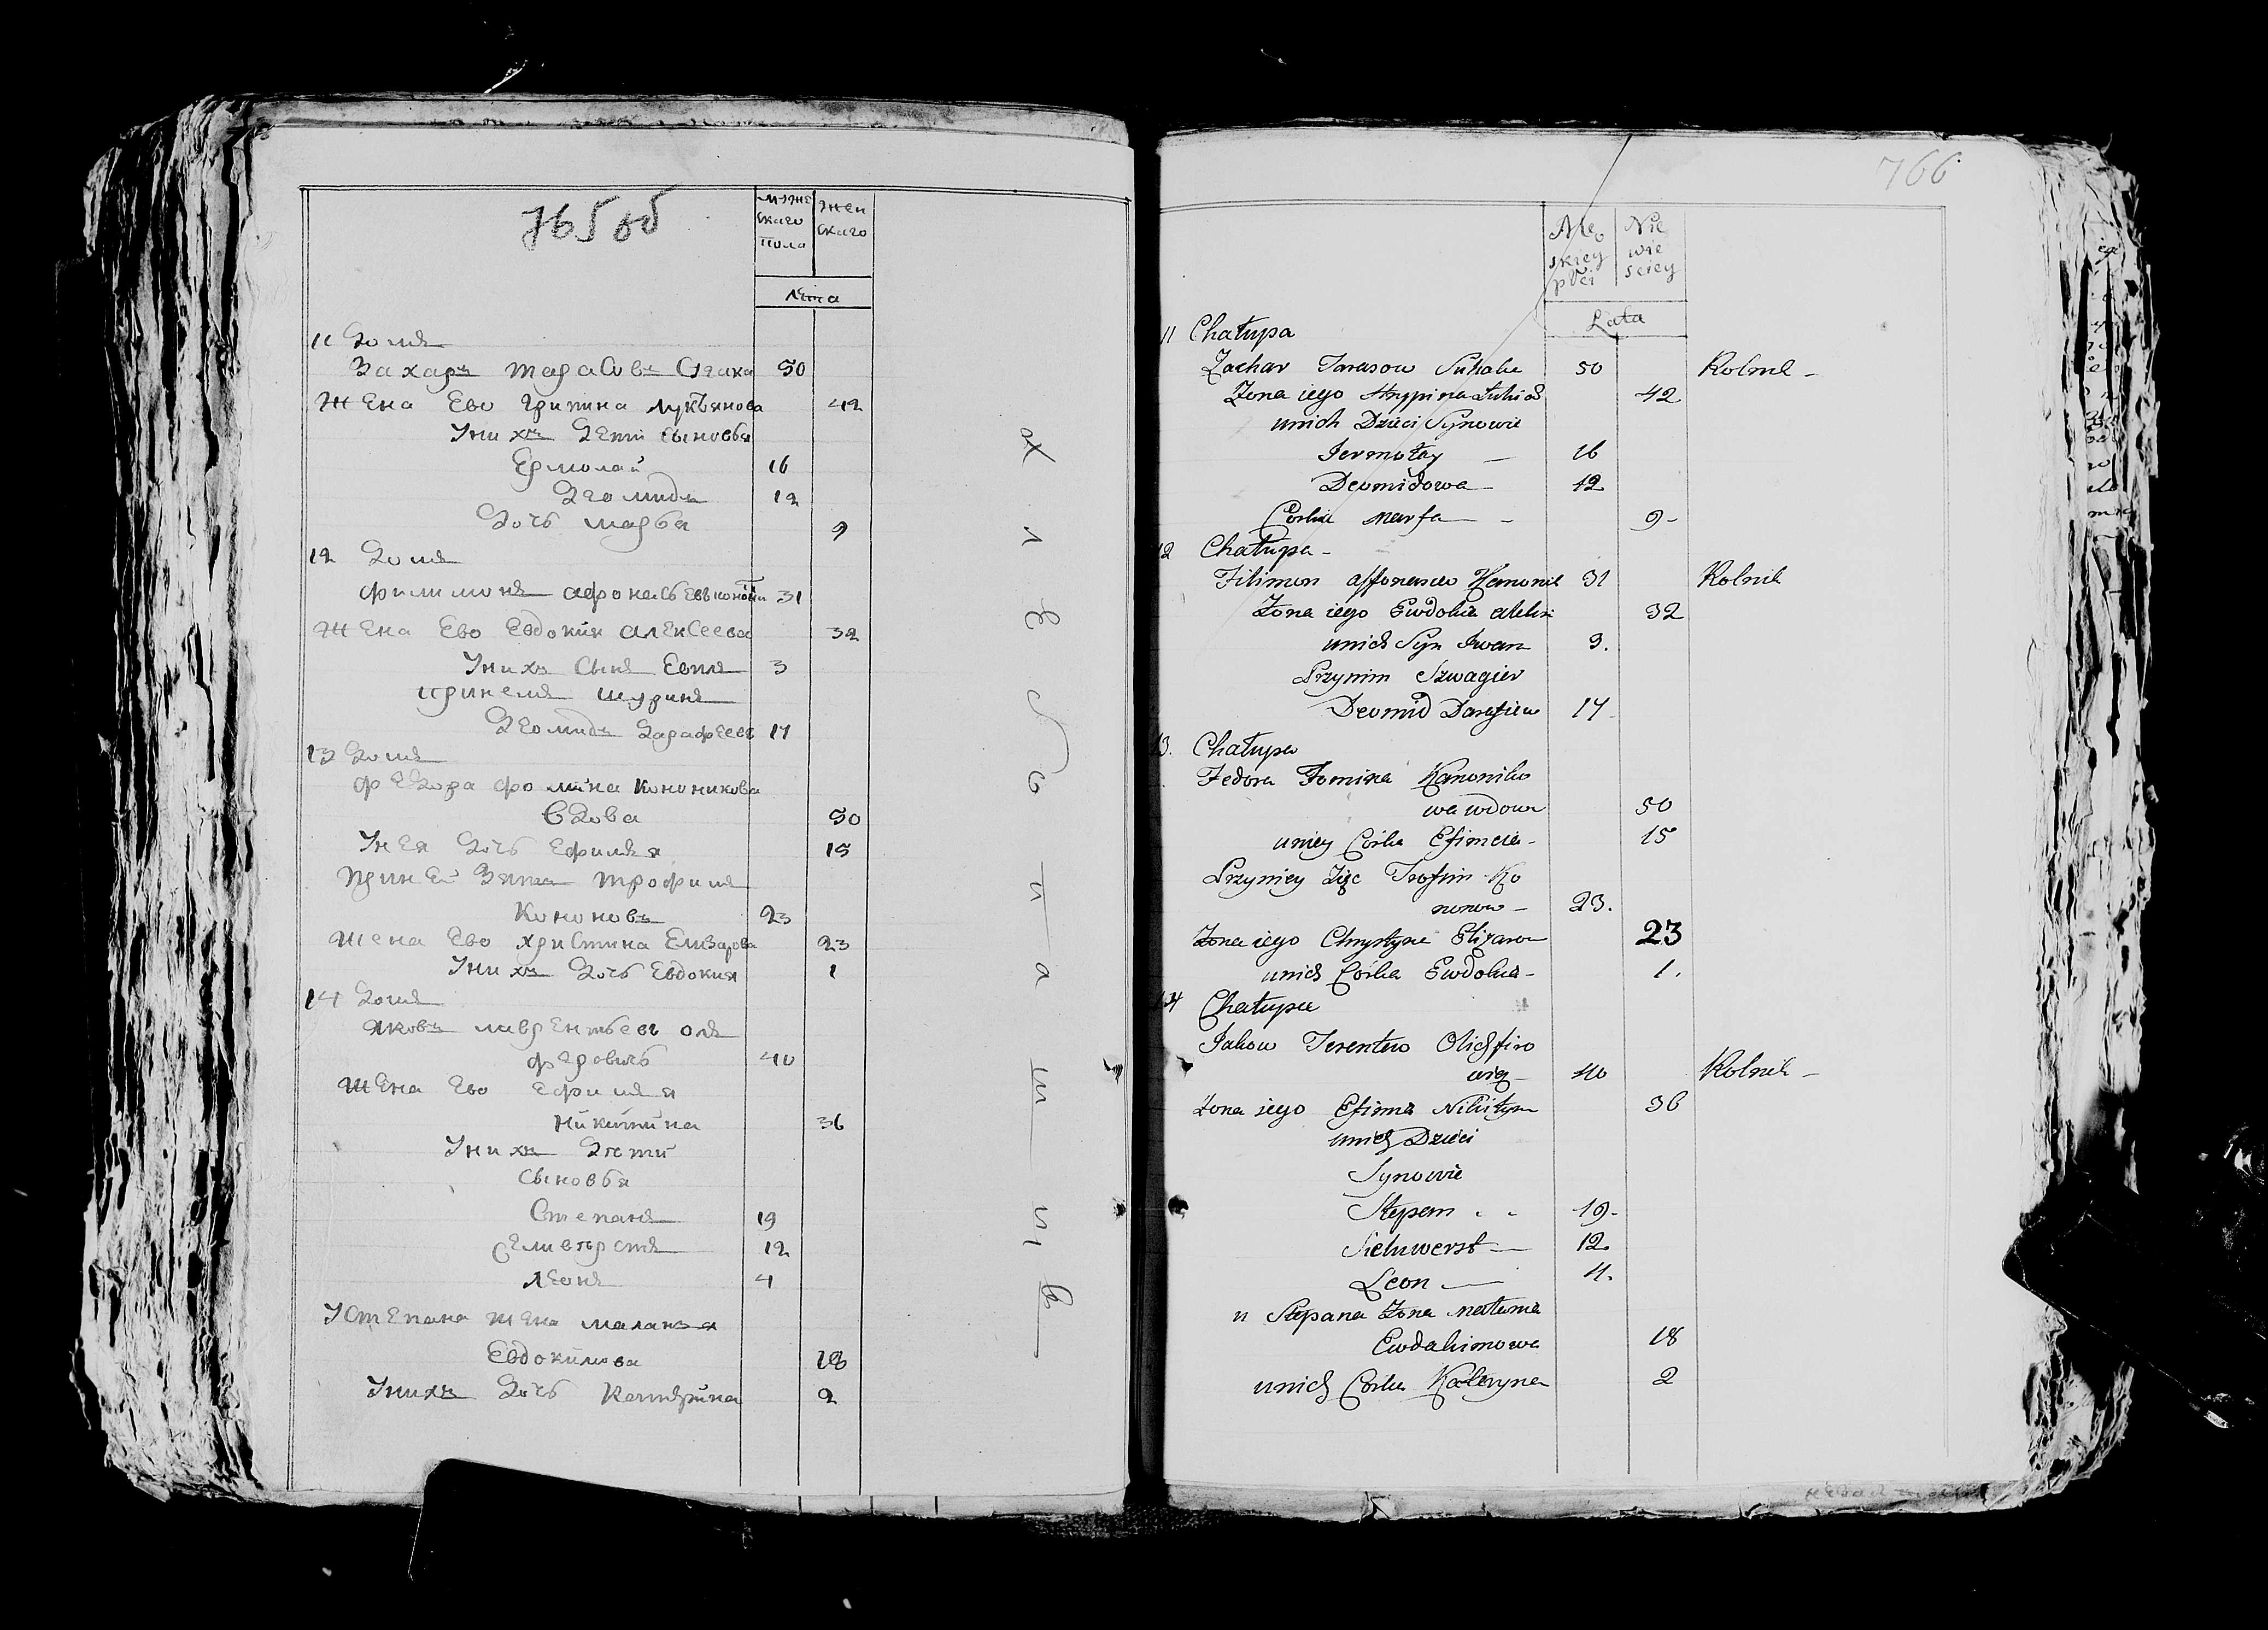 765 об
муже
скаго
пола
жен
скаго
лета
11 Домъ
Захаръ Тарасовъ 50
Жена Ево Грипина Лукъянова 42
Унихъ Дети сыновья
Ермолай 16
Деомидъ 12
Дочь Марва 9
12 Домъ
Филимонъ Афонасьевъ 31
Жена Ево Евдокия Алексеева 32
Унихъ Сынъ 3
принемъ шуринъ
Деомидъ Дарафеевъ 17
13 Домъ
Федора Фомина Кононикова
Вдова 50
Унея Дочь Ефимья 15
При Ней Зять Трофимъ
Кононовъ 23
Жена Ево Христина Елизарова 23
Унихъ Дочь Евдокия 1
14 Домъ
Яковъ Лаврентьевъ Оль
феровичь 40
Жена Ево Ефимья
Никитина 36
Унихъ Дети
Сыновья
Степанъ 19
Селивѣрстъ 12
Леонъ 4
Устепана жена маланья
Евдокимова 18
Унихъ Дочь Катярина 2
хлебопашцъ
766
Mę
skiey
płci
Nie
wie
sciey
Lata
11 Chałupa
Zachar Tarasow 50 Rolnik -
Żona iego Łukia 42
unich Dzieci Synowie
Jermołay - 16
Deomidowa - 12
Corka Marfa - 9 -
12 Chałupa -
Filimon affonasiew Kanonik 31 Rolnik
Żona iego Ewdokia Aleksi 32
unich Syn Iwan 3.
Przynim Szwagier
Deomid Darafiew 17
13. Chałupa
Fedora Fomina Kanoniko
wa wdowa 50
uniey Córka Efimeia - 15
Przyniey Zięc Trofim Ko
nonow - 23.
Żona iego Chrystyna Elizarow 23
unich Córka Ewdokia - 1.
14 Chałupa
Jakow Terentew Olichfiro
wicz - 40 Rolnik -
Żona iego Efimia Nikityn 36
unich Dzieci
Synowie
Stepan - - 19 -
Sieliwerst - 12
Leon - 4.
u Stepana Żona Małania
Ewdakimowa 18
unich Corka Kateryna 2